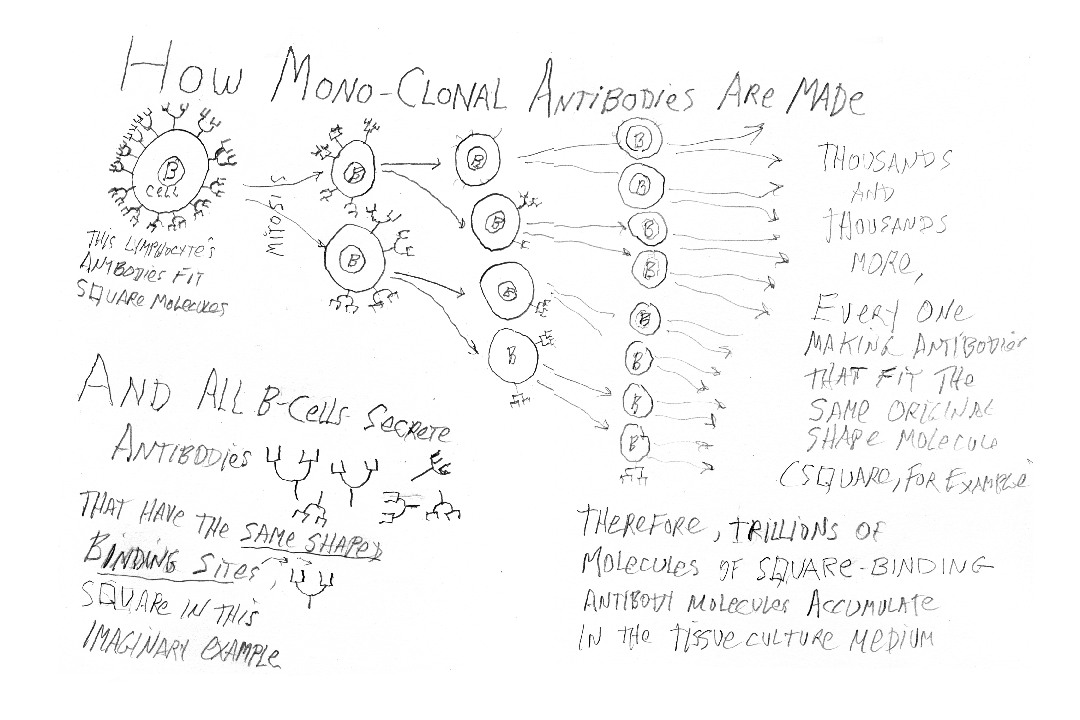 How Mono-Clonal Antibodies Are Made
B
Cell
This Limphocyte's
Antibodies Fit
Square Molecules
Mitosis
B
B
B
B
B
B
B
B
B
B
B
B
B
B
Thousands
and
Thousands
More,
Every One
Making Antibodies
That Fit The
Same Original
Shape Molecule
(Square, For Example
And All B-Cells Secrete
Antibodies
That Have The Same Shaped
Binding Sites,
Square In This
Imaginary Example
Therefore, Trillions Of
Molecules Of Square-Binding
Antibody Molecules Accumulate
In The Tissue Culture Medium